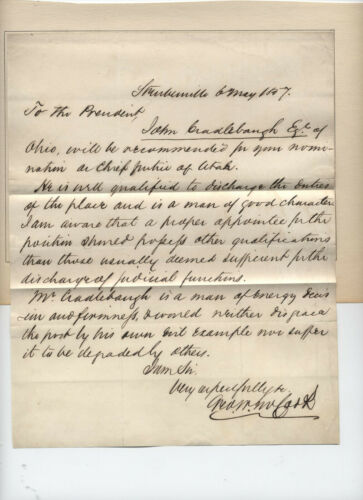 Steubenville 6 May 1857.
To the President,
John Cradlebaugh Esq. of
Ohio, will be recommended for your nomi-
nation as Chief Justice of Utah.
He is well qualified to discharge the duties
of the place and is a man of good character.
I am aware that a proper appointee for the
position should possess other qualifications
than those usually deemed sufficient for the
discharge of judicial functions.
Mr Cradlebaugh is a man of energy decis
ion and firmness, & would neither disgrace
the post by his own example nor suffer
it to be degraded by others.
I am Sir
Very respectfully &c.
Geo. W. McCook